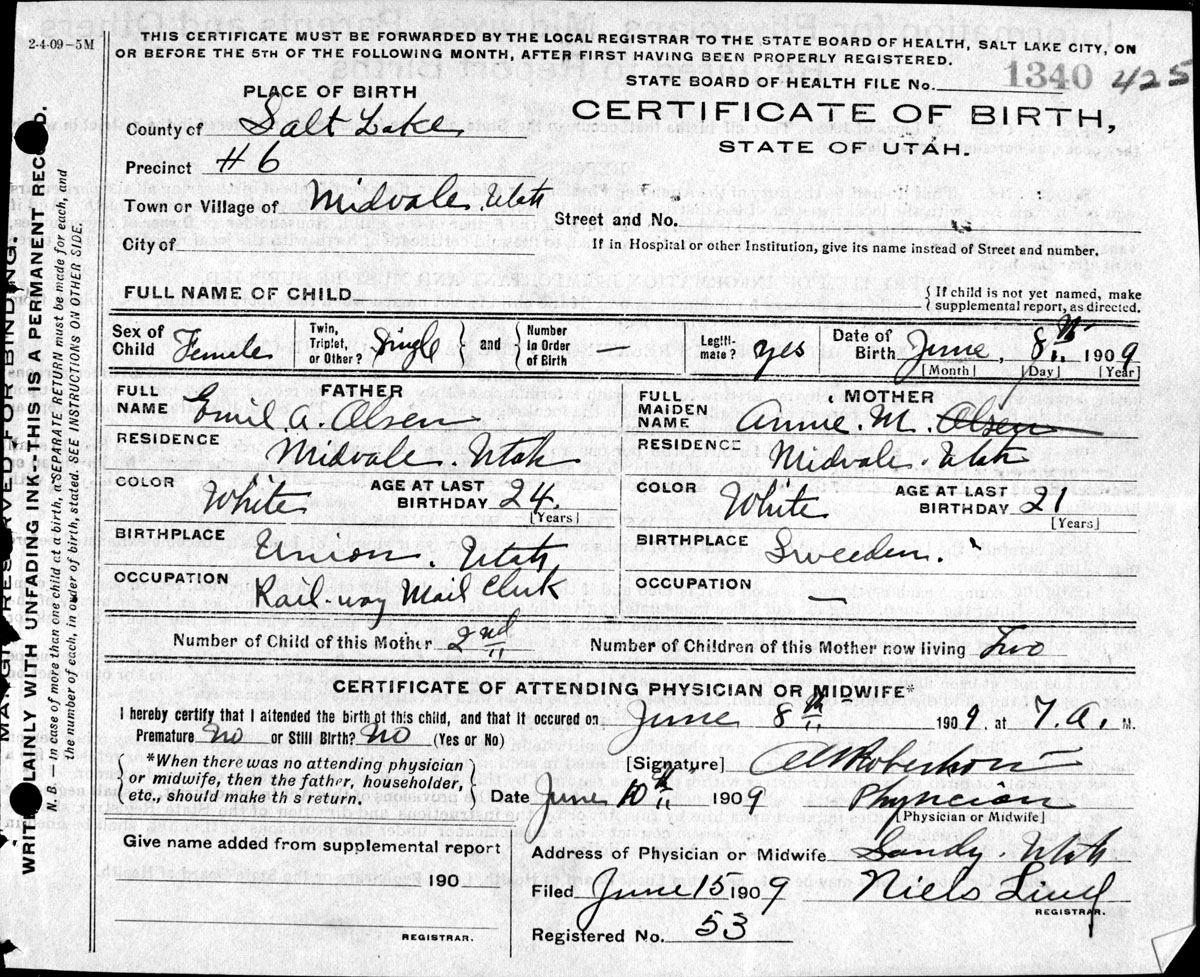 2-4-09-5M
THIS CERTIFICATE MUST BE FORWARDED BY THE LOCAL REGISTRAR TO THE STATE BOARD OF HEALTH, SALT LAKE CITY, ON
OR BEFORE THE 5TH OF THE FOLLOWING MONTH, AFTER FIRST HAVING BEEN PROPERLY REGISTERED.
STATE BOARD OF HEALTH FILE No. 1340 425
PLACE OF BIRTH
CERTIFICATE OF BIRTH,
STATE OF UTAH.
County of Salt Lake
Precinct #6
Town or Village of Midvale, Utah
Street and No.
City of
If in Hospital or other Institution, give its name instead of Street and number.
FULL NAME OF CHILD
{If child is not yet named, make
supplemental report, as directed.
Sex of Child Female
Twin, Triplet, or Other? Single } and { Number in Order of Birth —
Legiti-mate? yes
Date of Birth June, 8th, 1909
[Month] [Day] [Year]
FATHER
FULL NAME Emil A. Olsen
RESIDENCE Midvale. Utah
COLOR White AGE AT LAST BIRTHDAY 24.
[Years]
BIRTHPLACE Union. Utah
OCCUPATION Rail-way Mail Clerk
MOTHER
FULL MAIDEN NAME Annie. M. Olsen
RESIDENCE Midvale. Utah
COLOR White AGE AT LAST BIRTHDAY 21
[Years]
BIRTHPLACE Sweeden.
OCCUPATION —
Number of Child of this Mother 2nd
Number of Children of this Mother now living Two
CERTIFICATE OF ATTENDING PHYSICIAN OR MIDWIFE*
I hereby certify that I attended the birth of this child, and that it occured on June 8th 1909, at 7. A. M.
Premature No or Still Birth? No (Yes or No)
*When there was no attending physician
or midwife, then the father, householder,
etc., should make this return.
[Signature] Robertson
Date June 10th 1909
Physician
[Physician or Midwife]
Give name added from supplemental report
190
REGISTRAR.
Address of Physician or Midwife Sandy. Utah
Filed June 15 1909 Niels Lind
REGISTRAR.
Registered No. 53
MARGIN RESERVED FOR BINDING.
WRITE PLAINLY WITH UNFADING INK-THIS IS A PERMANENT RECORD.
N. B. — In case of more than one child at a birth, a SEPARATE RETURN must be made for each, and
the number of each, in order of birth, stated. SEE INSTRUCTIONS ON OTHER SIDE.